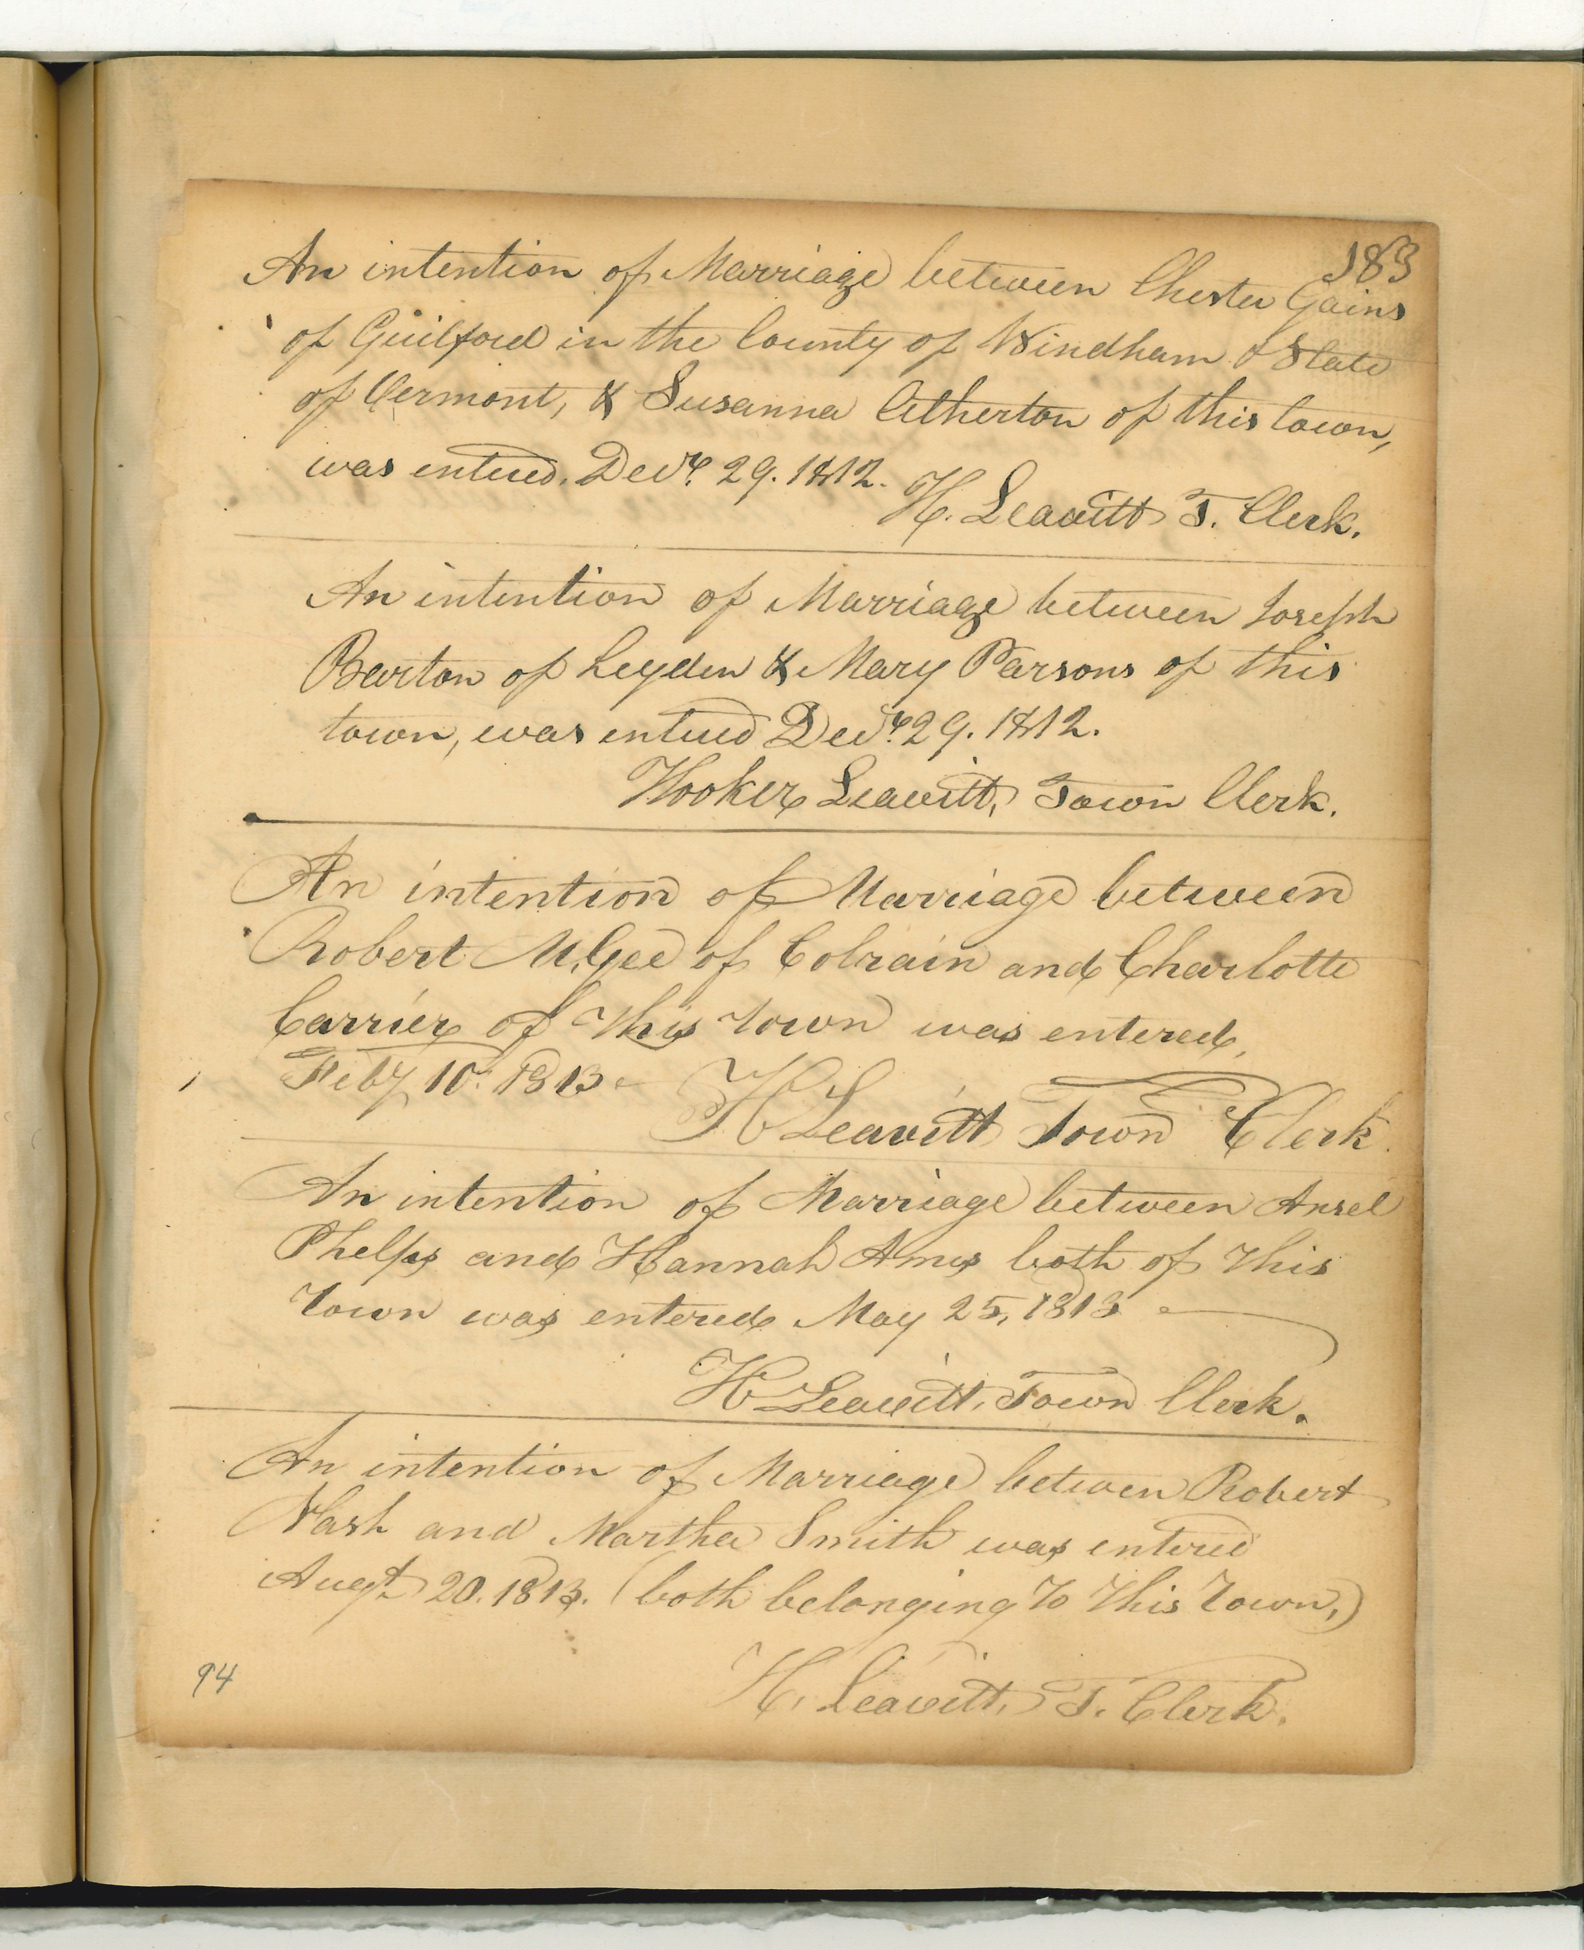 183
An intention of Marriage between Chester Gains
of Guilford in the County of Windham & State
of Vermont, & Susanna Atherton of this town,
was entered, Decr. 29. 1812.
H. Leavitt T. Clerk.
An intention of Marriage between Joseph
Barton of Leyden & Mary Parsons of this
town, was entered Decr. 29. 1812.
Hooker Leavitt, Town Clerk.
An intention of Marriage between
Robert McGee of Colrain and Charlotte
Carrier of this Town was entered,
Feby 10. 1813
H Leavitt Town Clerk.
An intention of Marriage between Ansel
Phelps and Hannah Ames both of this
Town was entered May 25, 1813
H Leavitt, Town Clerk.
An intention of Marriage between Robert
Nash and Martha Smith was entered
Augt. 20. 1813. (both belonging to this Town,)
H. Leavitt, T. Clerk.
94